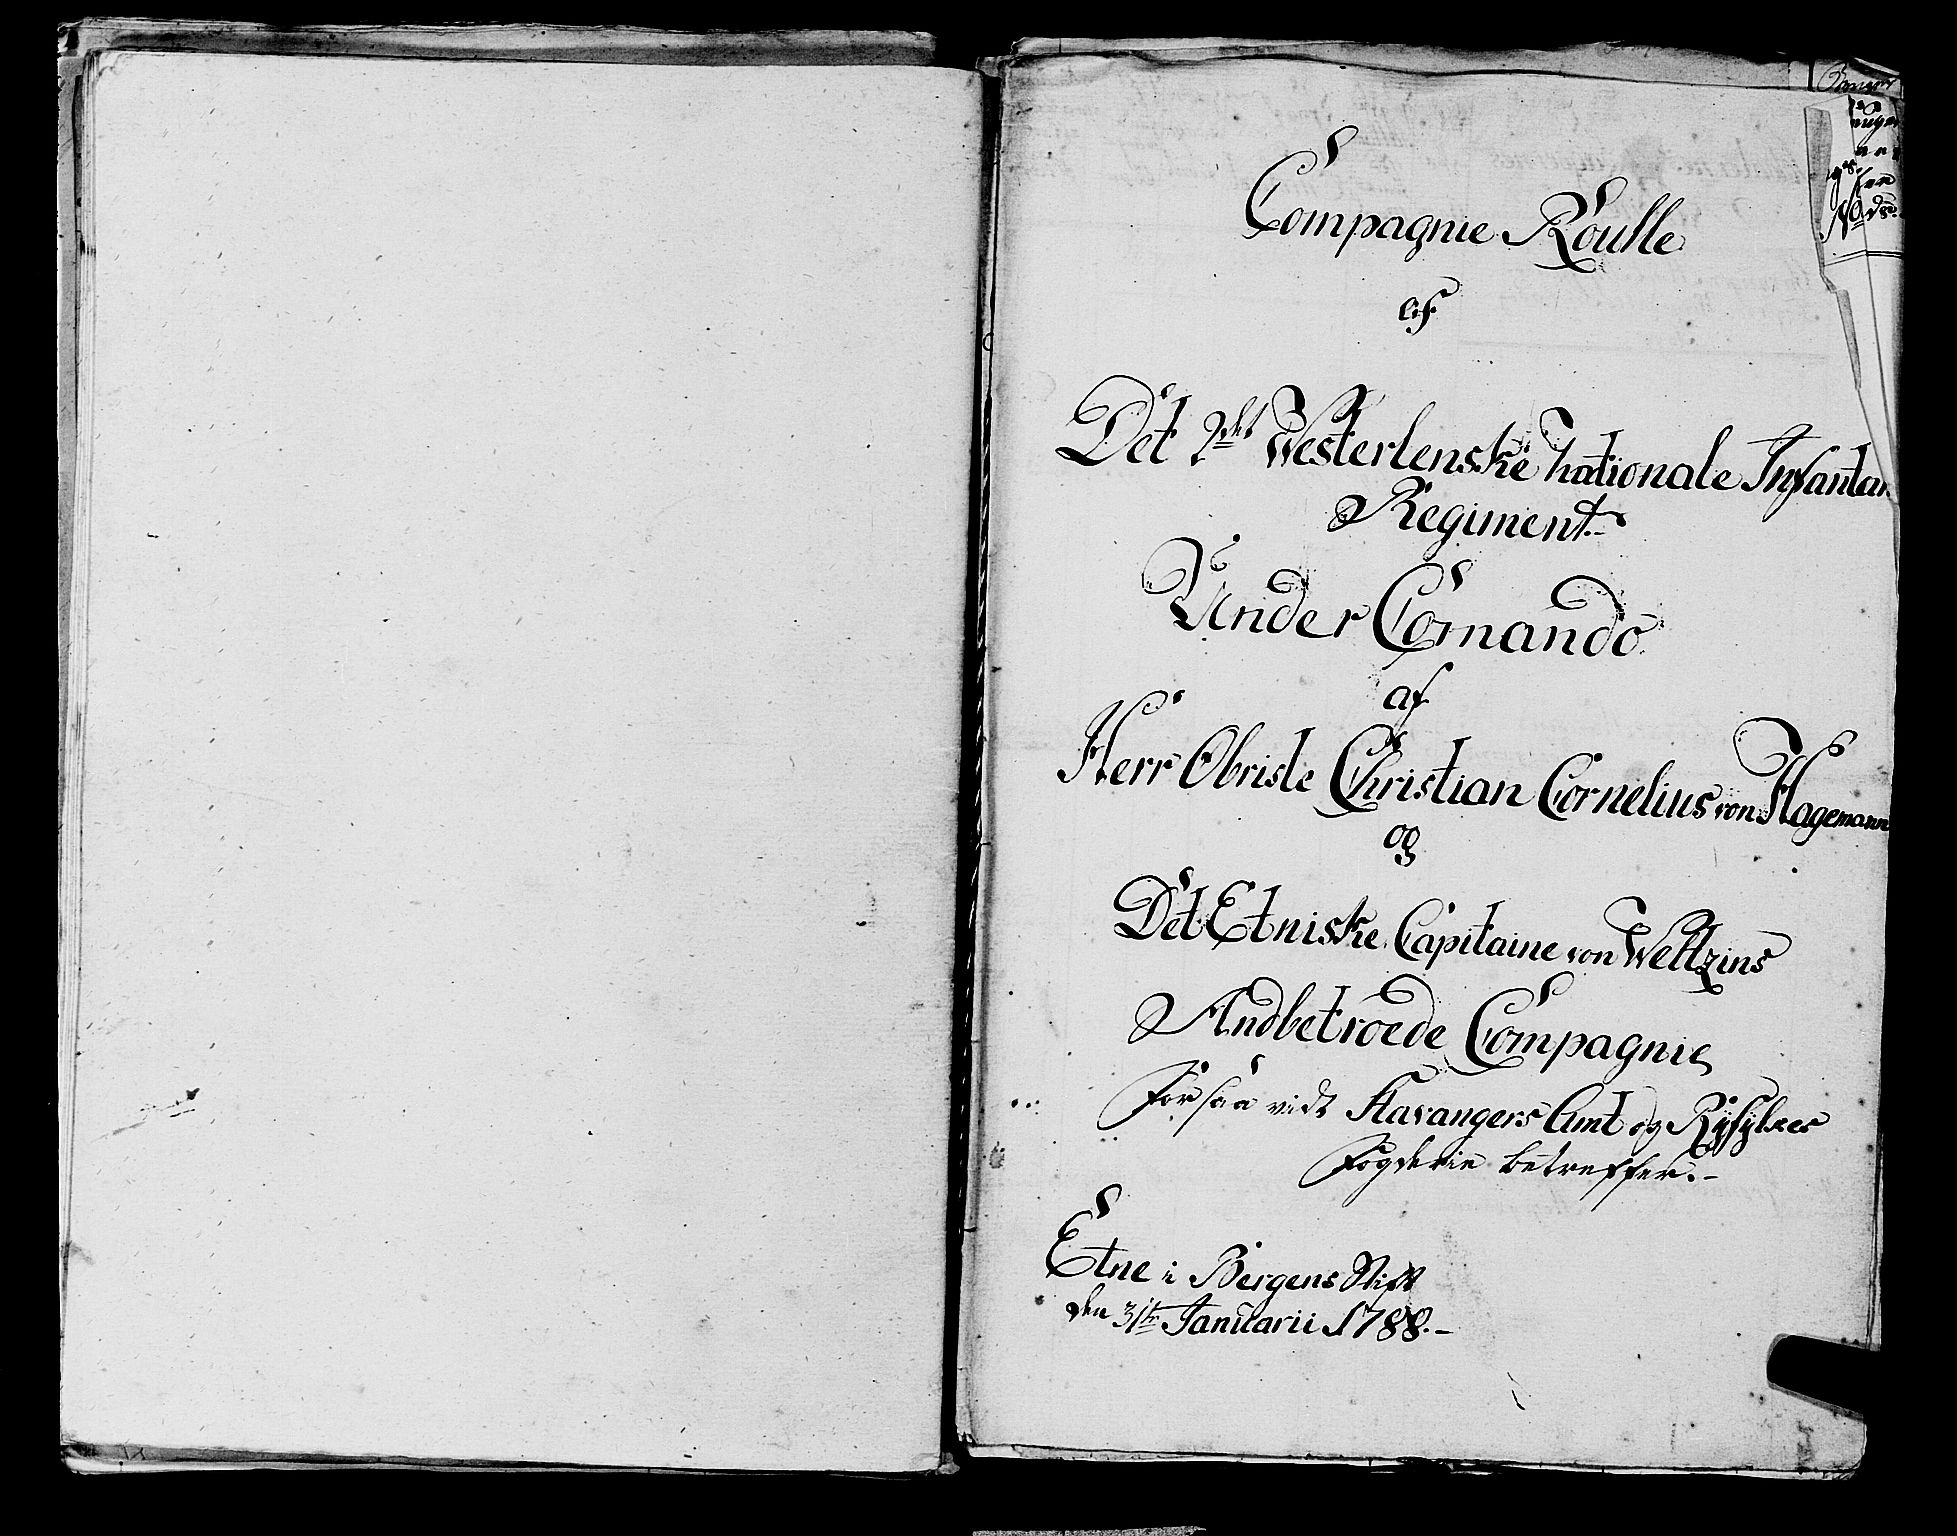 Compagnie Roulle
af
Det 2det Westerlenske nationale Infantar
Regiment.
Under Comando.
af
Herr Obriste Christian Cornelius von Hagemann
og
Det Etniske Capitaine von Weltzins
Andbetroede Compagnie
For saa vidt Stavangers Amt og Ryfylkes
Fogderie betreffer.-
Etne i Bergens Stift
den 31te Januarii 1788.-